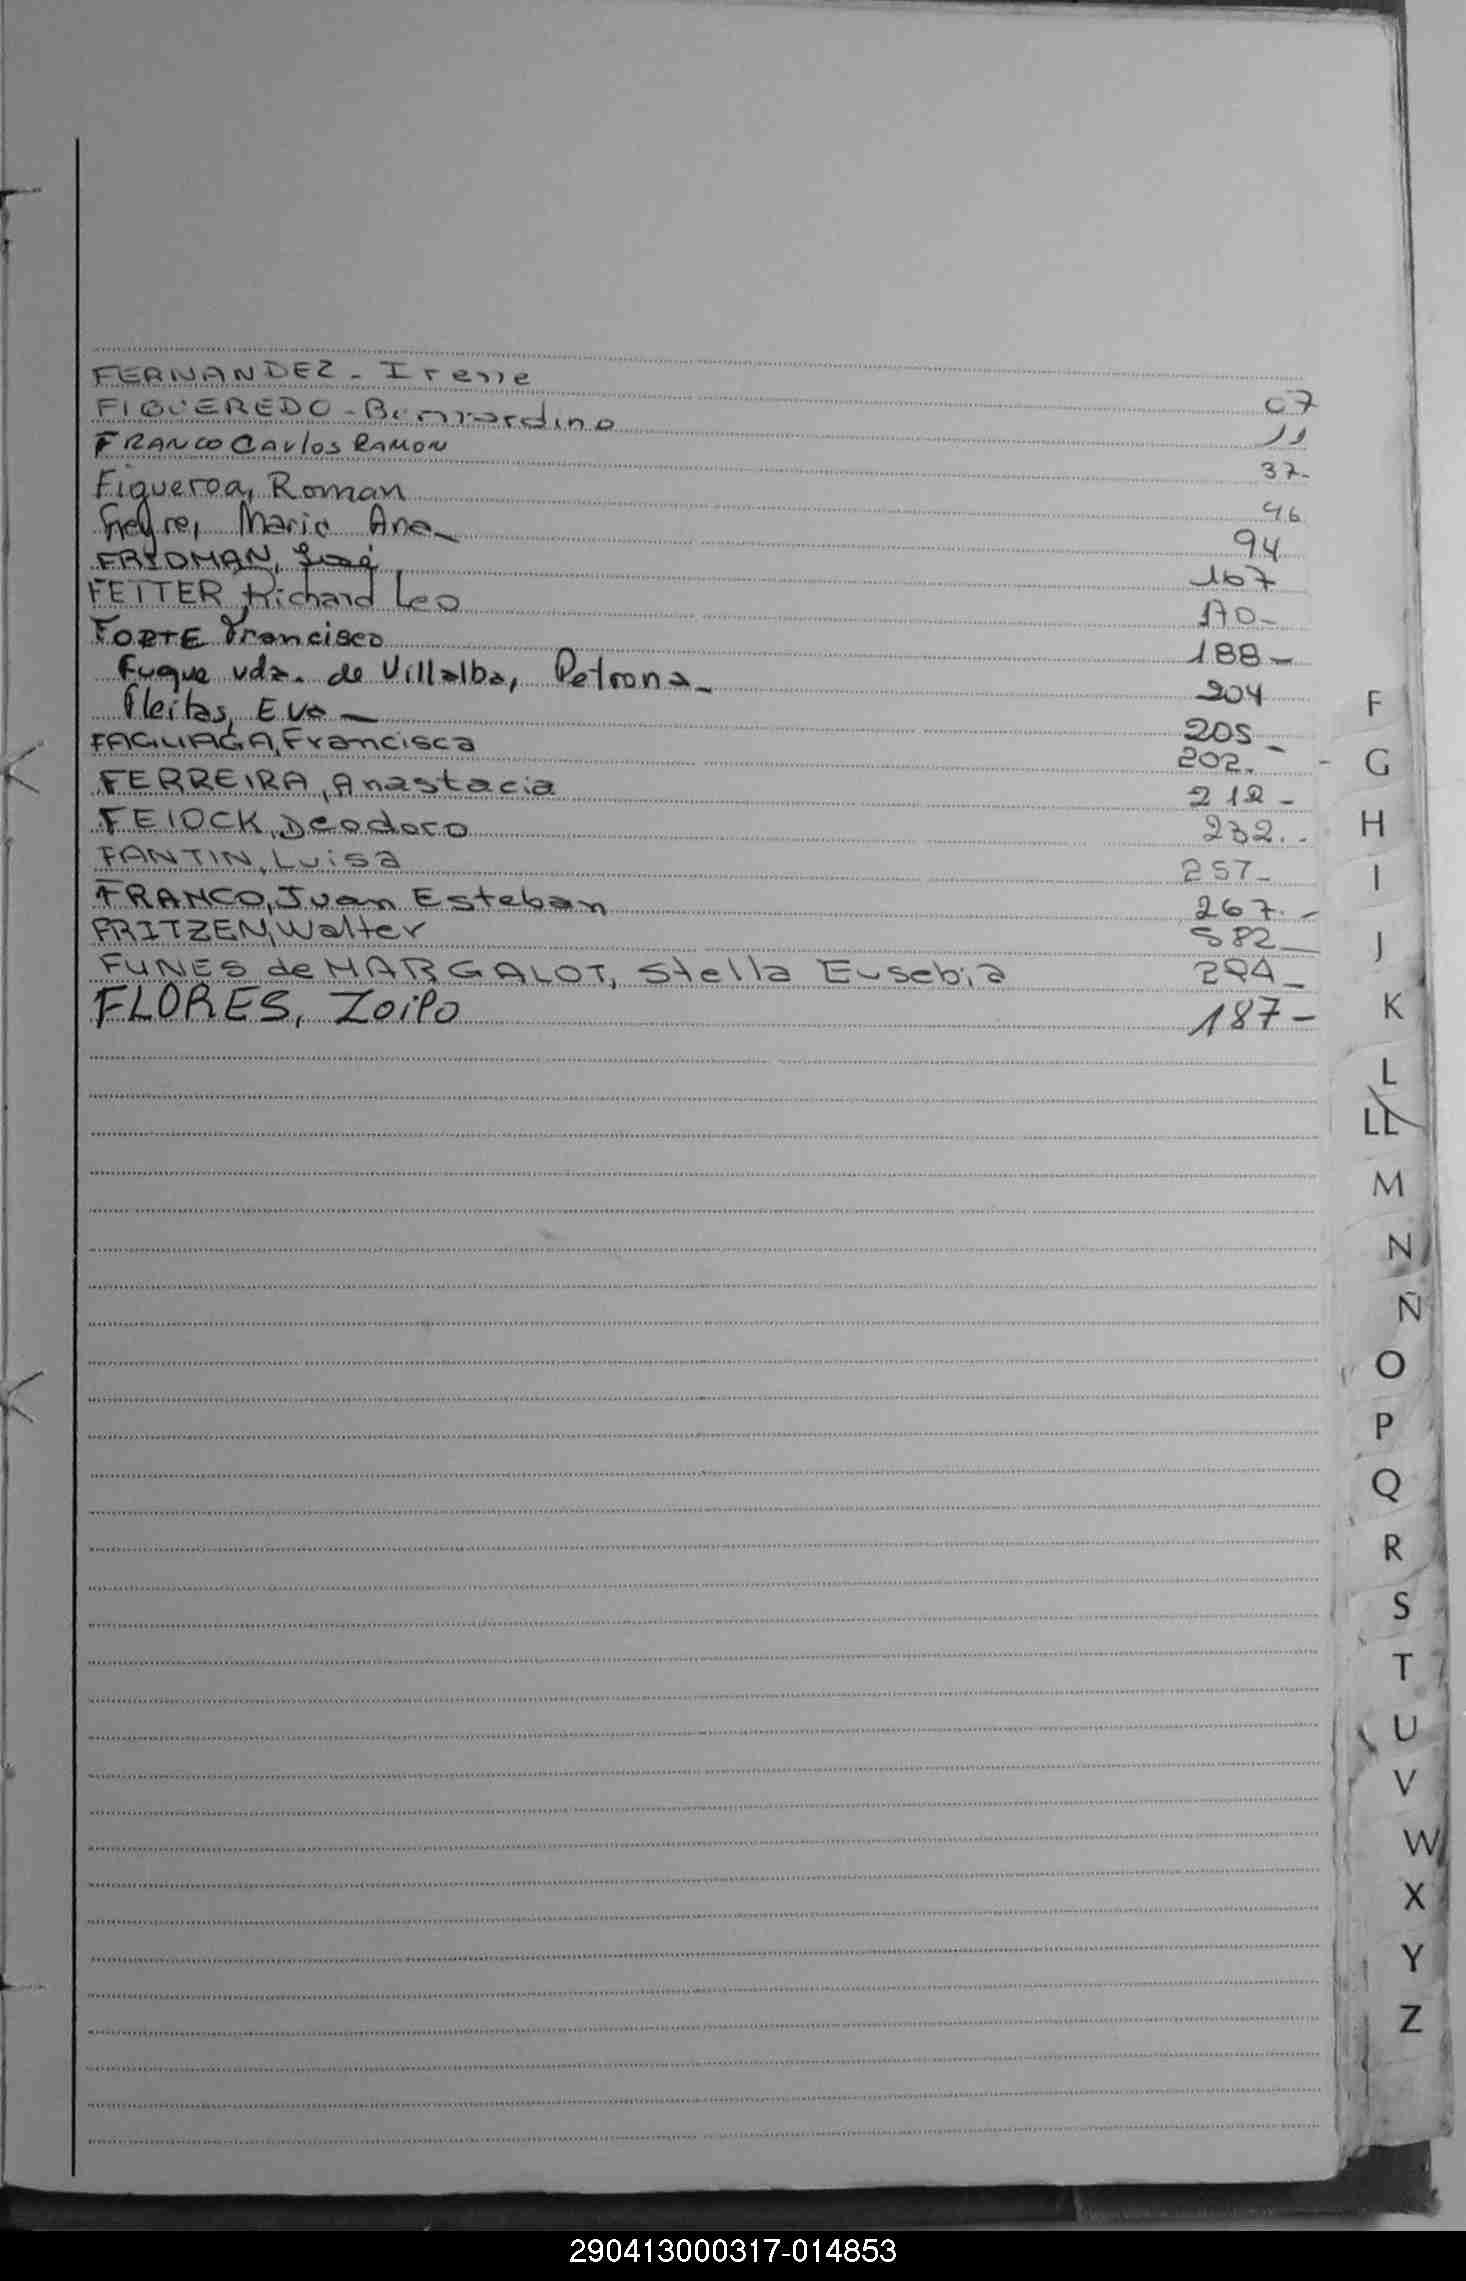 FERNANDEZ - Irene 07
FIGUEREDO - Bernardino 11
FRANCO Carlos RAMON 37-
Figueroa, Roman 46
Freyre, Maria Ana - 94
FRIDMAN, José 167
FETTER Richard Leo 170-
FORTE Francisco 188-
Fuque vda. de Villalba, Petrona - 204
Fleitas, Eva - 205 -
FAGUAGA, Francisca 202. -
FERREIRA, Anastacia 212 -
FEIOCK, Deodoro 232. -
FANTIN, Luisa 257 -
FRANCO, Juan Esteban 267. -
FRITZEN, Walter 582 -
FUNES de MARGALOT, Stella Eusebia -
FLORES, Zoilo 187 -
F
G
H
I
J
K
L
LL
M
N
Ñ
O
P
Q
R
S
T
U
V
W
X
Y
Z
290413000317-014853